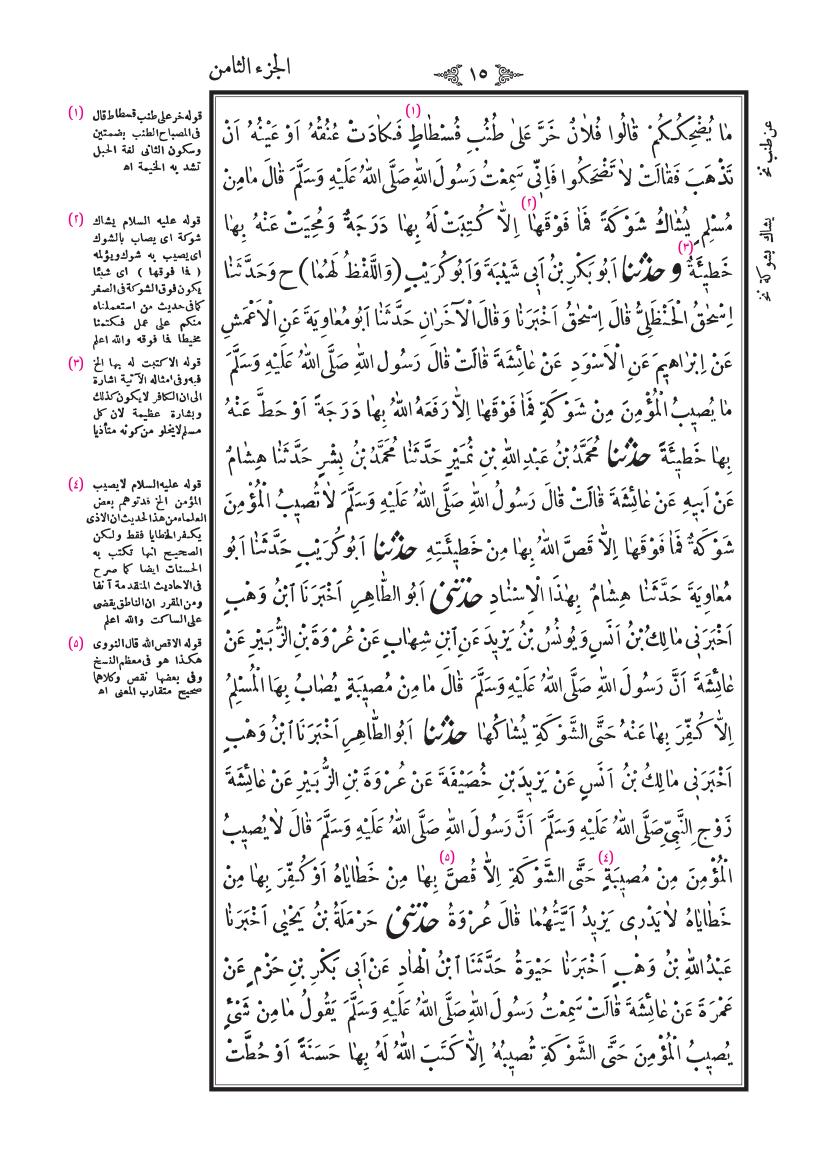 الجزء الثامن
١٥
مَا يُضْحِكُكُمْ قَالُوا فُلَانٌ خَرَّ عَلَى طُنُبِ فُسْطَاطٍ (١) فَكَادَتْ عُنُقُهُ اَوْ عَيْنُهُ اَنْ
تَذْهَبَ فَقَالَتْ لَا تَضْحَكُوا فَاِنِّى سَمِعْتُ رَسُولَ اللهِ صَلَّى اللهُ عَلَيْهِ وَسَلَّمَ قَالَ مَا مِنْ
مُسْلِمٍ يُشَاكُ شَوْكَةً فَمَا فَوْقَهَا (٢) اِلَّا كُتِبَتْ لَهُ بِهَا دَرَجَةٌ وَمُحِيَتْ عَنْهُ بِهَا
خَطِيئَةٌ (٣) وحَدَّثَنَا اَبُوبَكْرِ بْنُ اَبِى شَيْبَةَ وَاَبُوكُرَيْبٍ (وَاللَّفْظُ لَهُمَا) ح وَحَدَّثَنَا
اِسْحٰقُ الْحَنْظَلِىُّ قَالَ اِسْحٰقُ اَخْبَرَنَا وَقَالَ الْآخَرَانِ حَدَّثَنَا اَبُومُعَاوِيَةَ عَنِ الْاَعْمَشِ
عَنْ اِبْرَاهِيمَ عَنِ الْاَسْوَدِ عَنْ عَائِشَةَ قَالَتْ قَالَ رَسُولُ اللهِ صَلَّى اللهُ عَلَيْهِ وَسَلَّمَ
مَا يُصِيبُ الْمُؤْمِنَ مِنْ شَوْكَةٍ فَمَا فَوْقَهَا اِلَّا رَفَعَهُ اللهُ بِهَا دَرَجَةً اَوْ حَطَّ عَنْهُ
بِهَا خَطِيئَةً حَدَّثَنَا مُحَمَّدُ بْنُ عَبْدِ اللهِ بْنِ نُمَيْرٍ حَدَّثَنَا مُحَمَّدُ بْنُ بِشْرٍ حَدَّثَنَا هِشَامٌ
عَنْ اَبِيهِ عَنْ عَائِشَةَ قَالَتْ قَالَ رَسُولُ اللهِ صَلَّى اللهُ عَلَيْهِ وَسَلَّمَ لَا تُصِيبُ الْمُؤْمِنَ
شَوْكَةٌ فَمَا فَوْقَهَا اِلَّا قَصَّ اللهُ بِهَا مِنْ خَطِيئَتِهِ حَدَّثَنَا اَبُوكُرَيْبٍ حَدَّثَنَا اَبُو
مُعَاوِيَةَ حَدَّثَنَا هِشَامٌ بِهٰذَا الْاِسْنَادِ حَدَّثَنِى اَبُو الطَّاهِرِ اَخْبَرَنَا ابْنُ وَهْبٍ
اَخْبَرَنِى مَالِكُ بْنُ اَنَسٍ وَيُونُسُ بْنُ يَزِيدَ عَنِ ابْنِ شِهَابٍ عَنْ عُرْوَةَ بْنِ الزُّبَيْرِ عَنْ
عَائِشَةَ اَنَّ رَسُولَ اللهِ صَلَّى اللهُ عَلَيْهِ وَسَلَّمَ قَالَ مَا مِنْ مُصِيبَةٍ يُصَابُ بِهَا الْمُسْلِمُ
اِلَّا كُفِّرَ بِهَا عَنْهُ حَتَّى الشَّوْكَةِ يُشَاكُهَا حَدَّثَنَا اَبُو الطَّاهِرِ اَخْبَرَنَا ابْنُ وَهْبٍ
اَخْبَرَنِى مَالِكُ بْنُ اَنَسٍ عَنْ يَزِيدَ بْنِ خُصَيْفَةَ عَنْ عُرْوَةَ بْنِ الزُّبَيْرِ عَنْ عَائِشَةَ
زَوْجِ النَّبِىِّ صَلَّى اللهُ عَلَيْهِ وَسَلَّمَ اَنَّ رَسُولَ اللهِ صَلَّى اللهُ عَلَيْهِ وَسَلَّمَ قَالَ لَا يُصِيبُ
الْمُؤْمِنَ مِنْ مُصِيبَةٍ (٤) حَتَّى الشَّوْكَةِ اِلَّا قُصَّ (٥) بِهَا مِنْ خَطَايَاهُ اَوْ كُفِّرَ بِهَا مِنْ
خَطَايَاهُ لَا يَدْرِى يَزِيدُ اَيَّتُهُمَا قَالَ عُرْوَةُ حَدَّثَنِى حَرْمَلَةُ بْنُ يَحْيٰى اَخْبَرَنَا
عَبْدُ اللهِ بْنُ وَهْبٍ اَخْبَرَنَا حَيْوَةُ حَدَّثَنَا ابْنُ الْهَادِ عَنْ اَبِى بَكْرِ بْنِ حَزْمٍ عَنْ
عَمْرَةَ عَنْ عَائِشَةَ قَالَتْ سَمِعْتُ رَسُولَ اللهِ صَلَّى اللهُ عَلَيْهِ وَسَلَّمَ يَقُولُ مَا مِنْ شَىْءٍ
يُصِيبُ الْمُؤْمِنَ حَتَّى الشَّوْكَةِ تُصِيبُهُ اِلَّا كَتَبَ اللهُ لَهُ بِهَا حَسَنَةً اَوْ حُطَّتْ
عن طنب نخ
يشاك بشوكة نخ
(١) قوله خر على طنب فسطاط قال
فى المصباح الطنب بضمتين
وسكون الثانى لغة الحبل
تشد به الخيمة اه
(٢) قوله عليه السلام يشاك
شوكة اى يصاب بالشوك
اى يصيب به شوك ويؤلمه
(فما فوقها) اى شيئا
يكون فوق الشوكة فى الصغر
كما فى حديث من استعملناه
منكم على عمل فكتمنا
مخيطا فما فوقه والله اعلم
(٣) قوله الا كتبت له بها الخ
فيه وفى امثاله الآتية اشارة
الى ان الكافر لا يكون كذلك
وبشارة عظيمة لان كل
مسلم لا يخلو من كونه متأذيا
(٤) قوله عليه السلام لا يصيب
المؤمن الخ قد توهم بعض
العلماء من هذا الحديث ان الاذى
يكفر الخطايا فقط ولكن
الصحيح انها تكتب به
الحسنات ايضا كما صرح
فى الاحاديث المتقدمة آنفا
ومن المقرر ان الناطق يقضى
على الساكت والله اعلم
(٥) قوله الا قص الله قال النووى
هكذا هو فى معظم النسخ
وفى بعضها نقص وكلاهما
صحيح متقارب المعنى اه